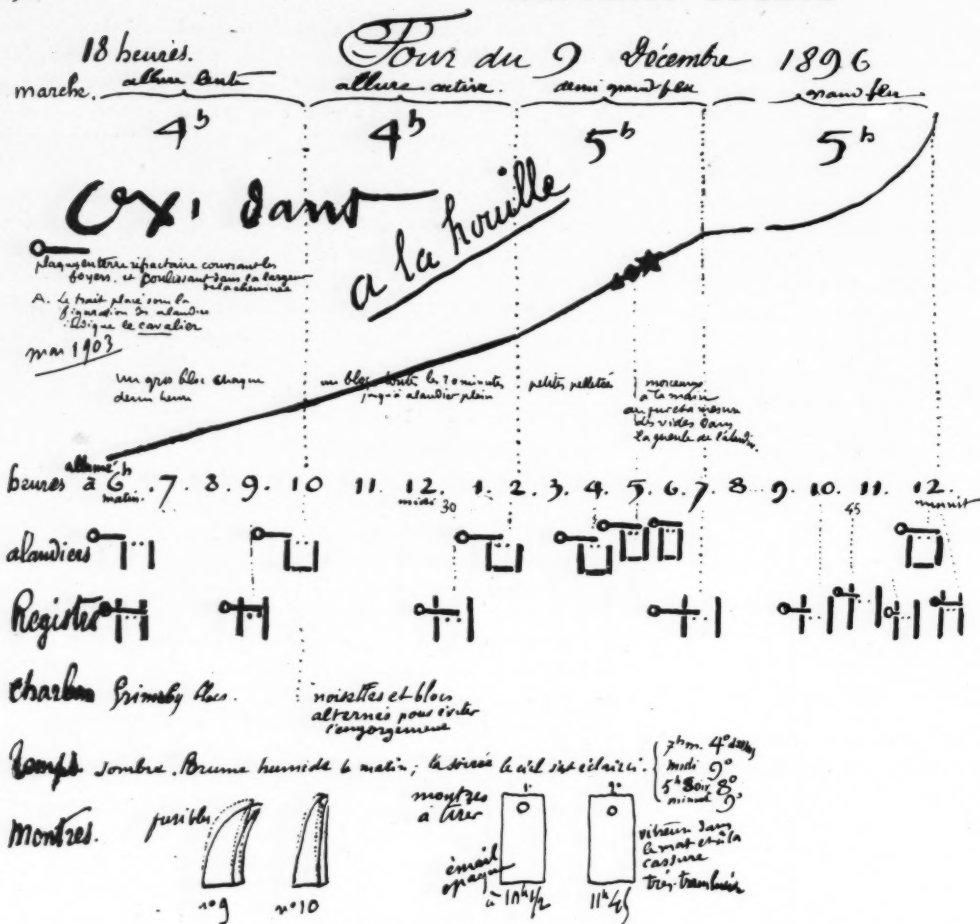 18 heures.
Four du 9 Décembre 1896
marche. allure lente allure active. demi grand feu grand feu
4h 4h 5h 5h
Oxidant
a la houille
plaques en terre réfractaire couvrant les
foyers. et coulissant dans la largeur
de la cheminée
A. Le trait placé sous la
figuration des alandiers
indique le cavalier
mai 1903
un gros bloc chaque
demi heure
un bloc toutes les 20 minutes
jusqu'à alandier plein
petites pelletées
morceaux
à la main
au fur et à mesure
des vides dans
la gueule de l'alandier.
allumé h
heures à 6 .7. 8. 9. 10 11. 12. 1. 2. 3. 4. 5. 6. 7. 8 9. 10. 11. 12.
matin. midi 30 45 minuit
alandiers
Registres
Charbon Grimsby blocs.
noisettes et blocs
alternés pour éviter
l'engorgement
Temps sombre. Brume humide le matin; la soirée le ciel s'est éclairci.
7h m. 4°
midi 9°
5h Soir 8°
minuit 9°
Montres. fusibles
n°9 n°10
montres
à tirer
1° 2°
émail
opaque
à 10h 1/2 11h 45
vitreux dans
le mat et à la
cassure
très translucide